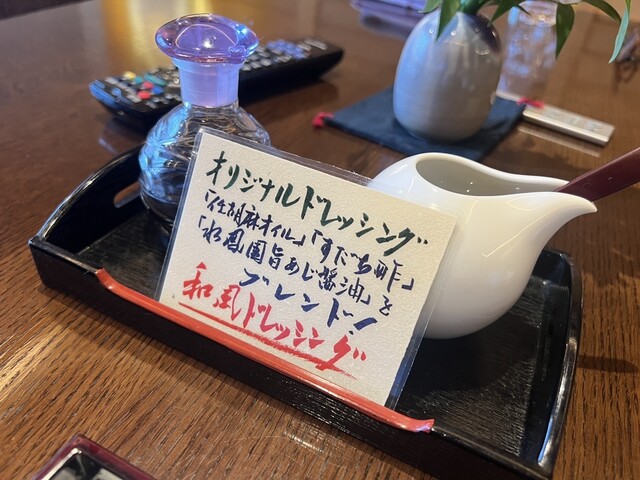 オリジナルドレッシング
「荏胡麻オイル」「すだち酢」
「水鳳園旨あじ醤油」を
ブレンド!
和風ドレッシング